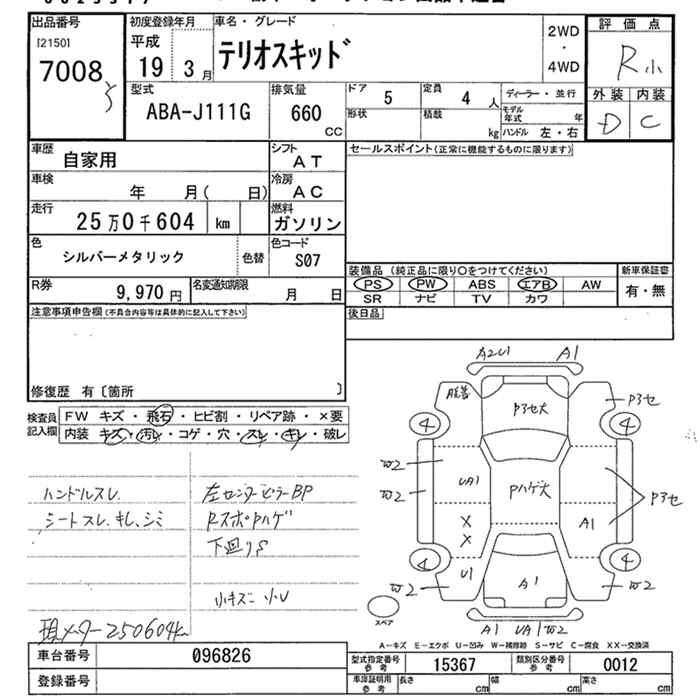 出品番号
[2150]
7008
初度登録年月
平成
19 3月
車名・グレード
テリオスキッド
2WD
・
4WD
評価点
R小
外装 内装
D C
型式
ABA-J111G
排気量
660
CC
ドア
5
定員
4 人
ディーラー・並行
形状
積載
kg
モデル年式
年
ハンドル 左・右
車歴
自家用
シフト
AT
セールスポイント(正常に機能するものに限ります)
車検
年 月( 日)
冷房
AC
走行
25万0千604 km
燃料
ガソリン
色
シルバーメタリック
色替
色コード
S07
R券
9,970円
名変通知期限
月 日
装備品 (純正品に限り○をつけてください)
PS PW ABS エアB AW
SR ナビ TV カワ
新車保証書
有・無
後日品
注意事項申告欄(不具合内容等は具体的に記入して下さい)
修復歴 有〔箇所 〕
検査員記入欄
FW キズ・飛石・ヒビ割・リペア跡・×要
内装 キズ・汚レ・コゲ・穴・スレ・キレ・破レ
ハンドルスレ
シートスレ、キレ、シミ
左センターピラーBP
RスポPハゲ
下廻りS
小キズ 小U
現メーター250604km
A2U1 A1
P3セ大
P3セ
4
4
W2
W2
UA1
Pハゲ大
P3セ
X
X
A1
U1
4
4
W2
A1
W2
スペア
A1 UA1 W2
A-キズ E-エクボ U-凹み W-補修跡 S-サビ C-腐食 XX-交換済
車台番号
096826
登録番号
型式指定番号
参考
15367
類別区分番号
参考
0012
車庫証明用
参考
長さ cm
幅 cm
高さ cm